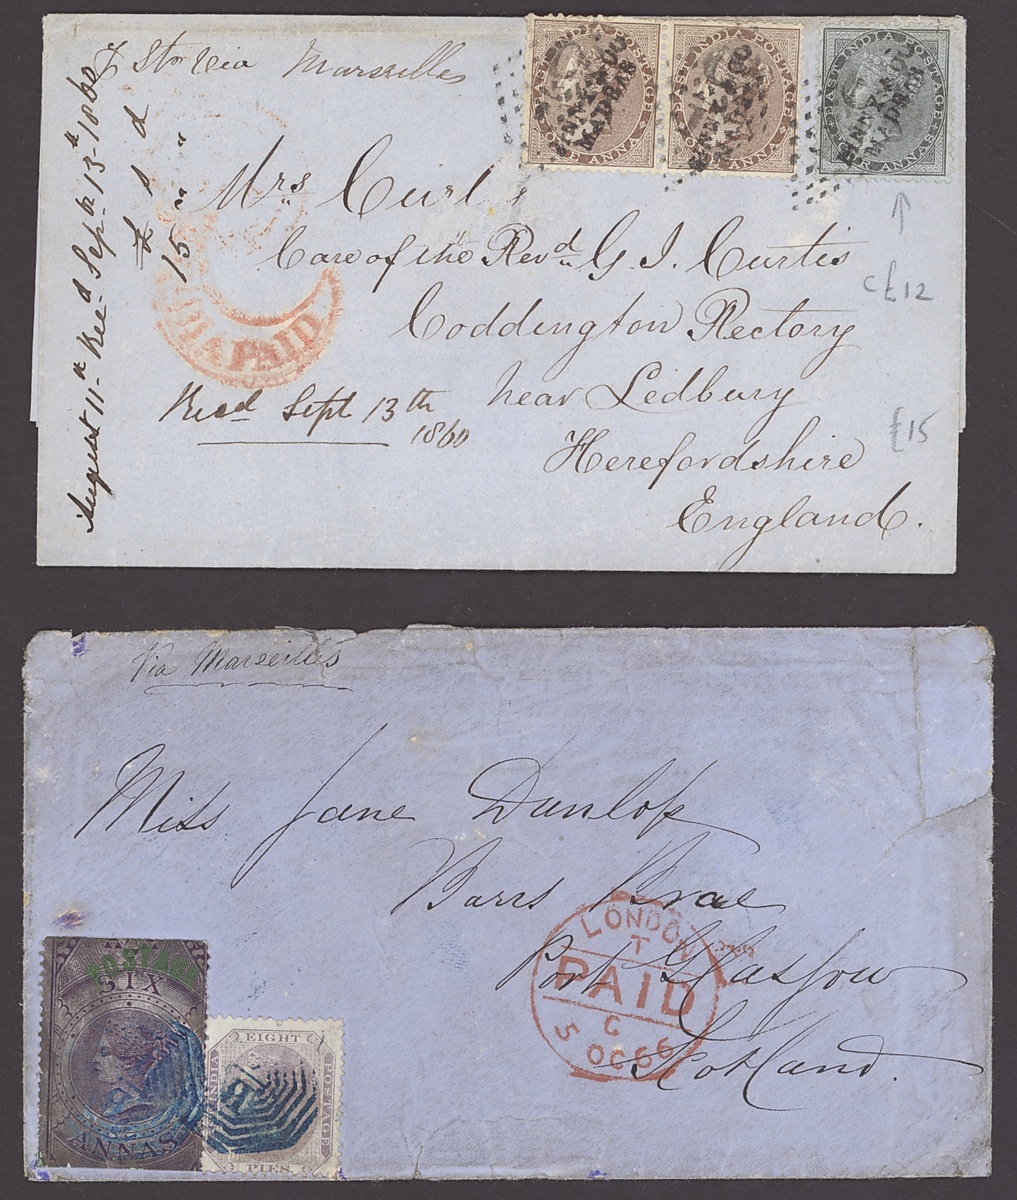 Str Via Marseilles
EAST INDIA POSTAGE
ONE ANNA
EAST INDIA POSTAGE
ONE ANNA
EAST INDIA POSTAGE
FOUR ANNAS
MADRAS
August 11th Recd Sep 13th 1860
£ s d
15 " "
Mrs Curl
Care of the Revd G. I. Curtis
Coddington Rectory
near Ledbury
Herefordshire
England.
INDIA PAID
Recd Sept 13th
1860
c£12
£15
Via Marseilles
Miss Jane Dunlop
Barrs Brae
Port Glasgow
Scotland.
LONDON
T
PAID
C
5 OC 66
POSTAGE
SIX
ANNAS
EIGHT
INDIA POSTAGE
PIES.